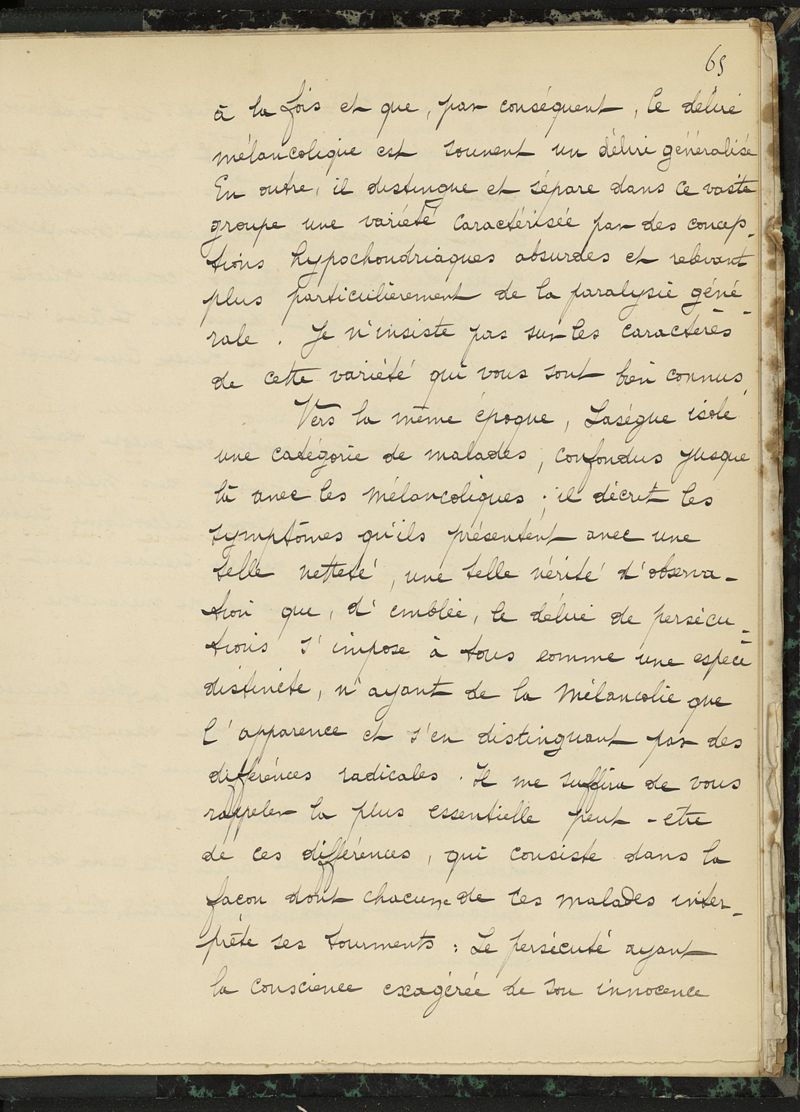 65
à la fois et que, par conséquent, le délire
mélancolique est souvent un délire généralisé
En outre, il distingue et sépare dans ce vaste
groupe une variété caractérisée par des concep-
tions hypochondriaques absurdes et relevant
plus particulièrement de la paralysie géné-
rale. Je n'insiste pas sur les caractères
de cette variété qui vous sont bien connus
Vers la même époque, Lasègue isole
une catégorie de malades, confondus jusque
là avec les mélancoliques ; il décrit les
symptômes qu'ils présentent avec une
telle netteté, une telle vérité d'observa-
tion que, d'emblée, le délire de persécu-
tions s'impose à tous comme une espèce
distincte, n'ayant de la mélancolie que
l'apparence et s'en distinguant par des
différences radicales. Il me suffira de vous
rappeler la plus essentielle peut-etre
de ces différences, qui consiste dans la
façon dont chacune de ces malades inter-
prète ses tourments : Le persécuté ayant
la conscience exagérée de son innocence